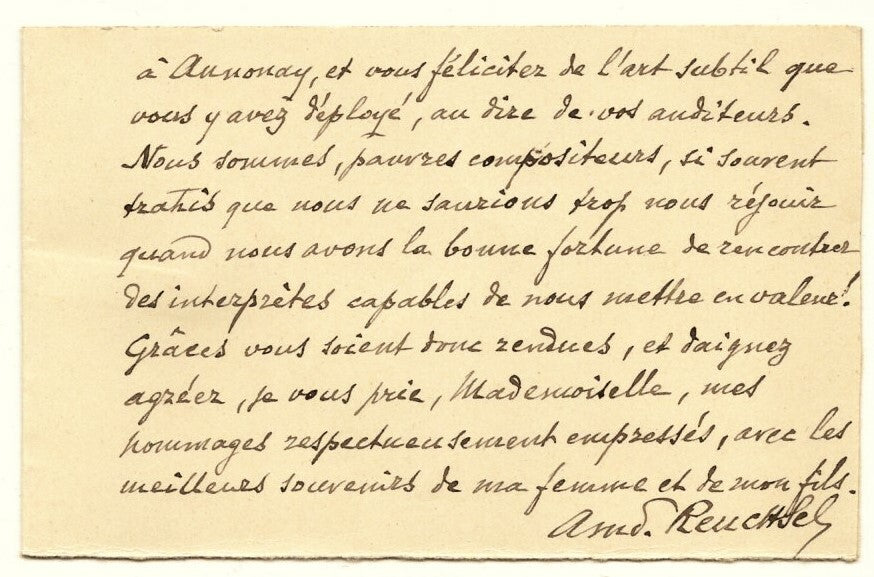 à Annonay, et vous féliciter de l'art subtil que
vous y avez déployé, au dire de vos auditeurs.
Nous sommes, pauvres compositeurs, si souvent
trahis que nous ne saurions trop nous réjouir
quand nous avons la bonne fortune de rencontrer
des interprètes capables de nous mettre en valeur!.
Grâces vous soient donc rendues, et daignez
agréer, je vous prie, Mademoiselle, mes
hommages respectueusement empressés, avec les
meilleurs souvenirs de ma femme et de mon fils.
Amd. Reuchsel